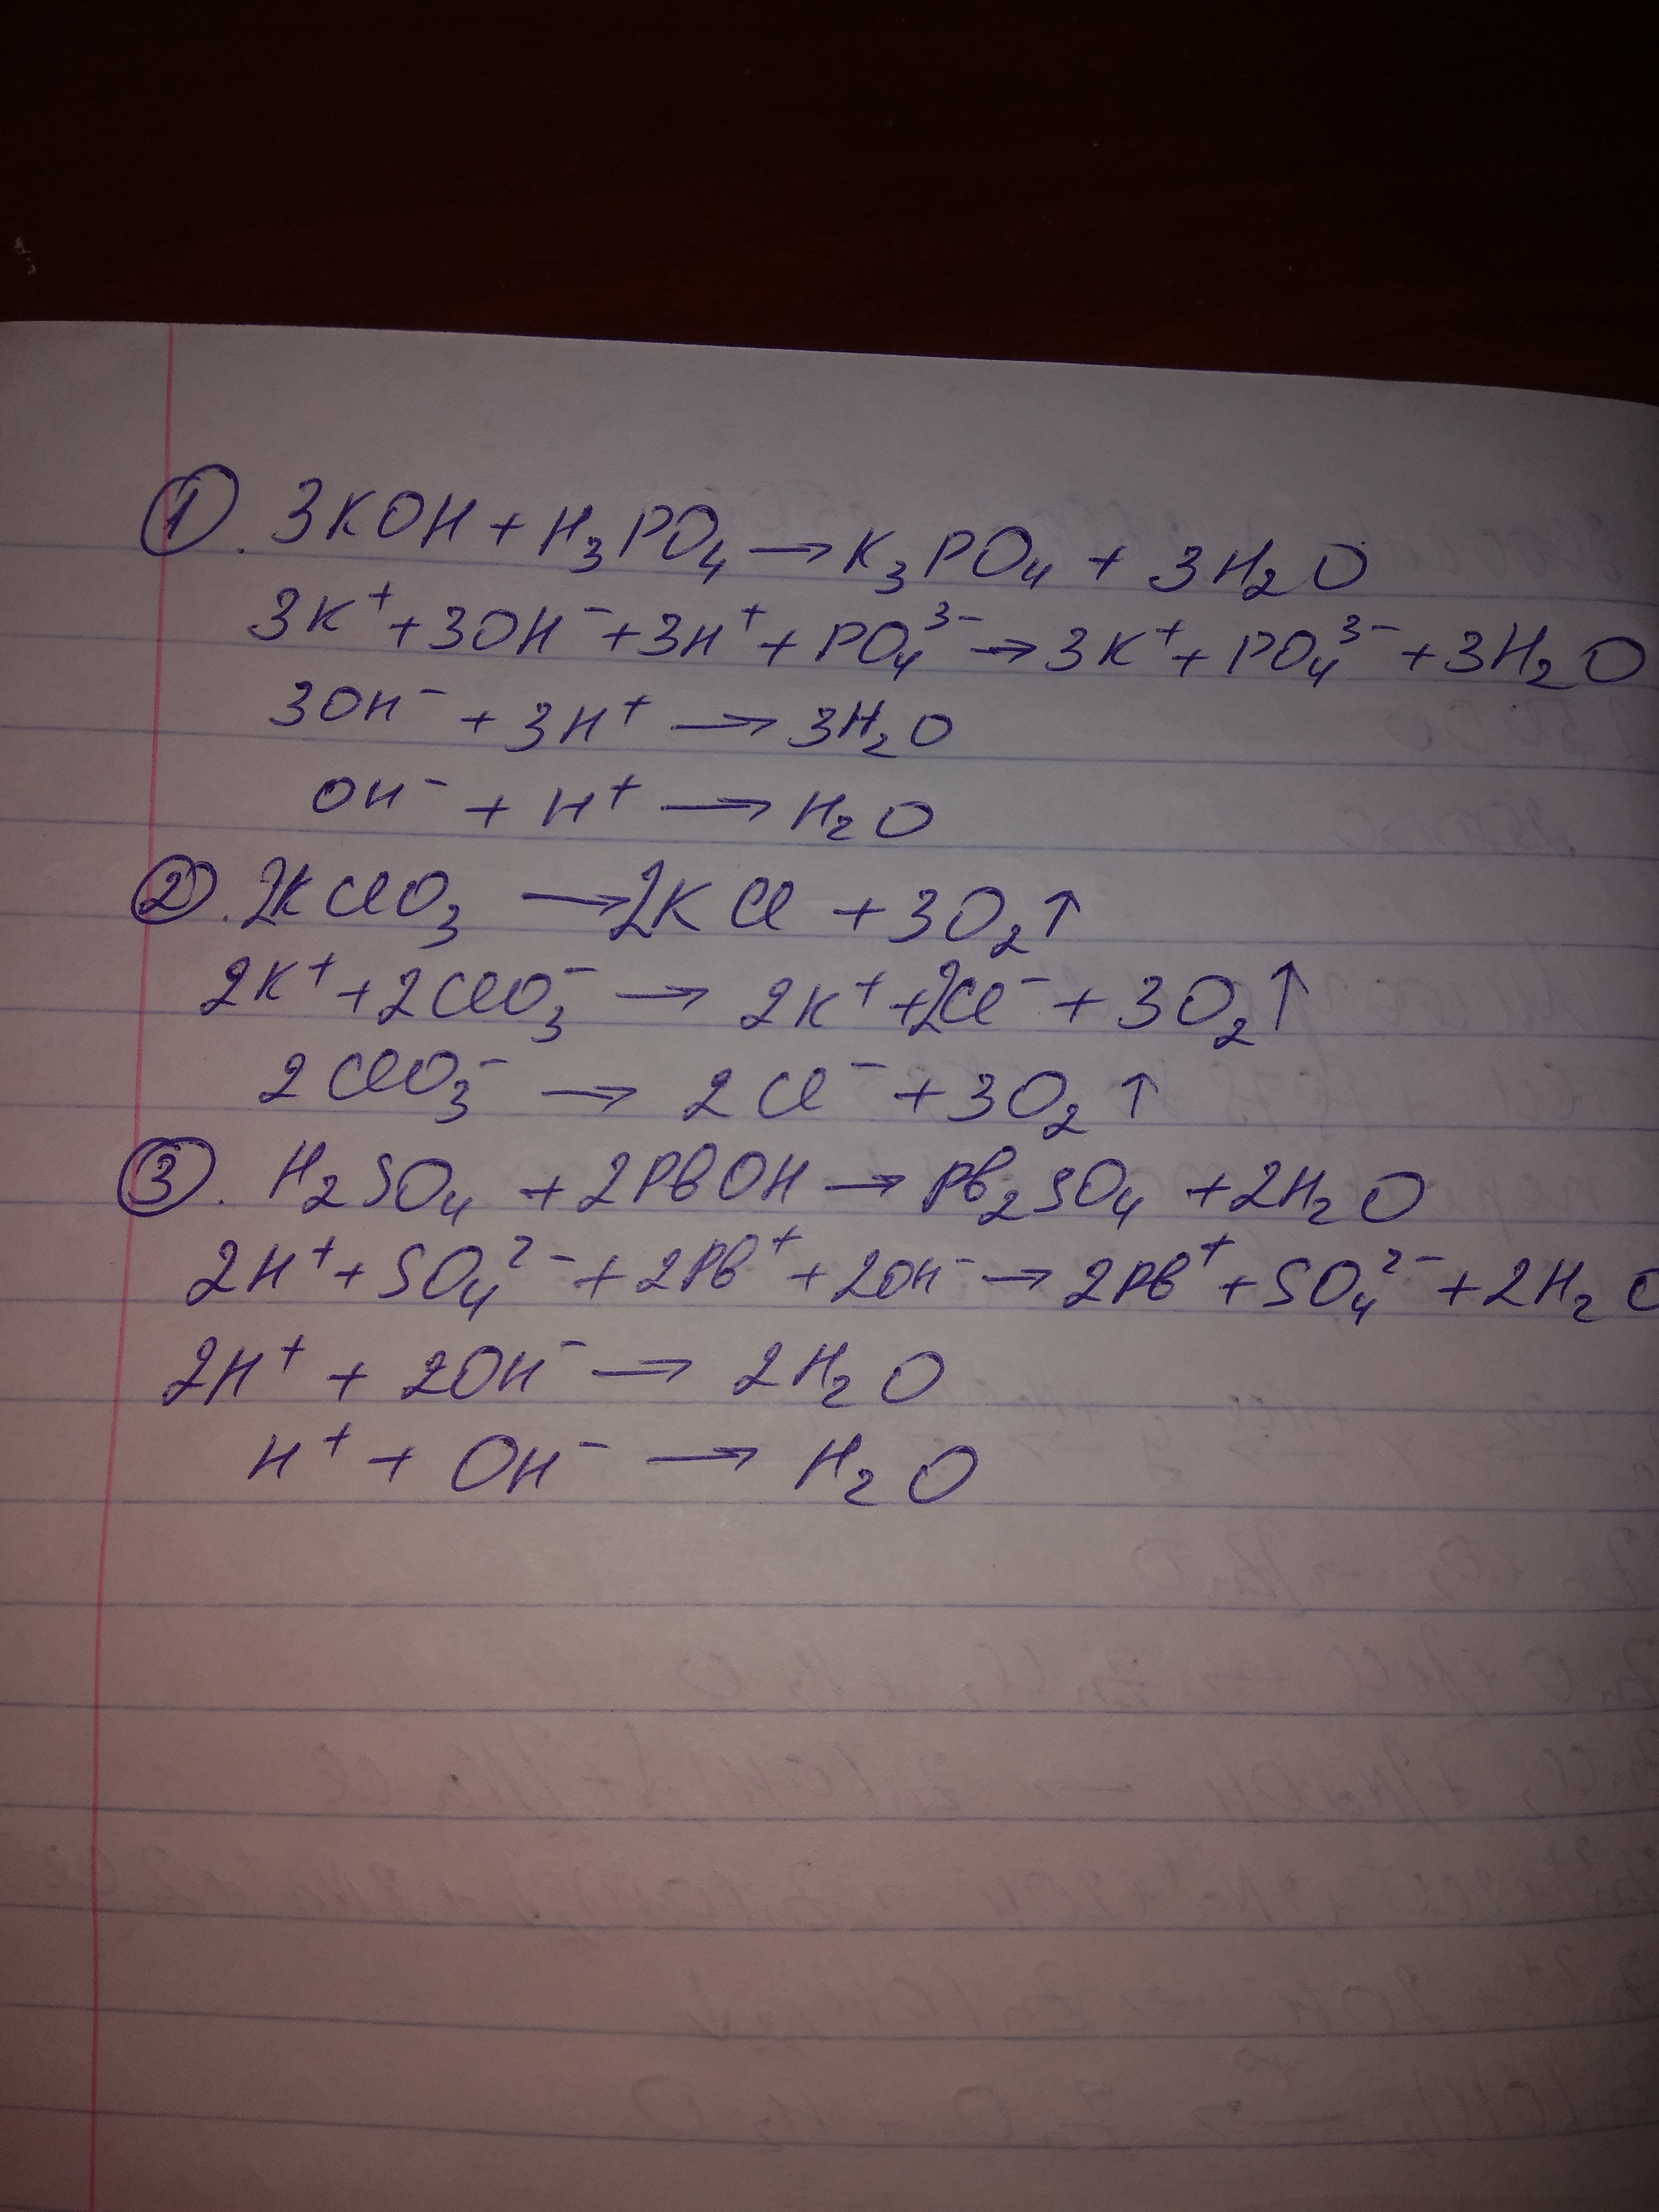 ① . 3KOH + H₃PO₄ → K₃PO₄ + 3H₂O
3K⁺ + 3OH⁻ + 3H⁺ + PO₄³⁻ → 3K⁺ + PO₄³⁻ + 3H₂O
3OH⁻ + 3H⁺ → 3H₂O
OH⁻ + H⁺ → H₂O
② . 2KClO₃ → 2KCl + 3O₂↑
2K⁺ + 2ClO₃⁻ → 2K⁺ + 2Cl⁻ + 3O₂↑
2ClO₃⁻ → 2Cl⁻ + 3O₂↑
③ . H₂SO₄ + 2PbOH → Pb₂SO₄ + 2H₂O
2H⁺ + SO₄²⁻ + 2Pb⁺ + 2OH⁻ → 2Pb⁺ + SO₄²⁻ + 2H₂O
2H⁺ + 2OH⁻ → 2H₂O
H⁺ + OH⁻ → H₂O